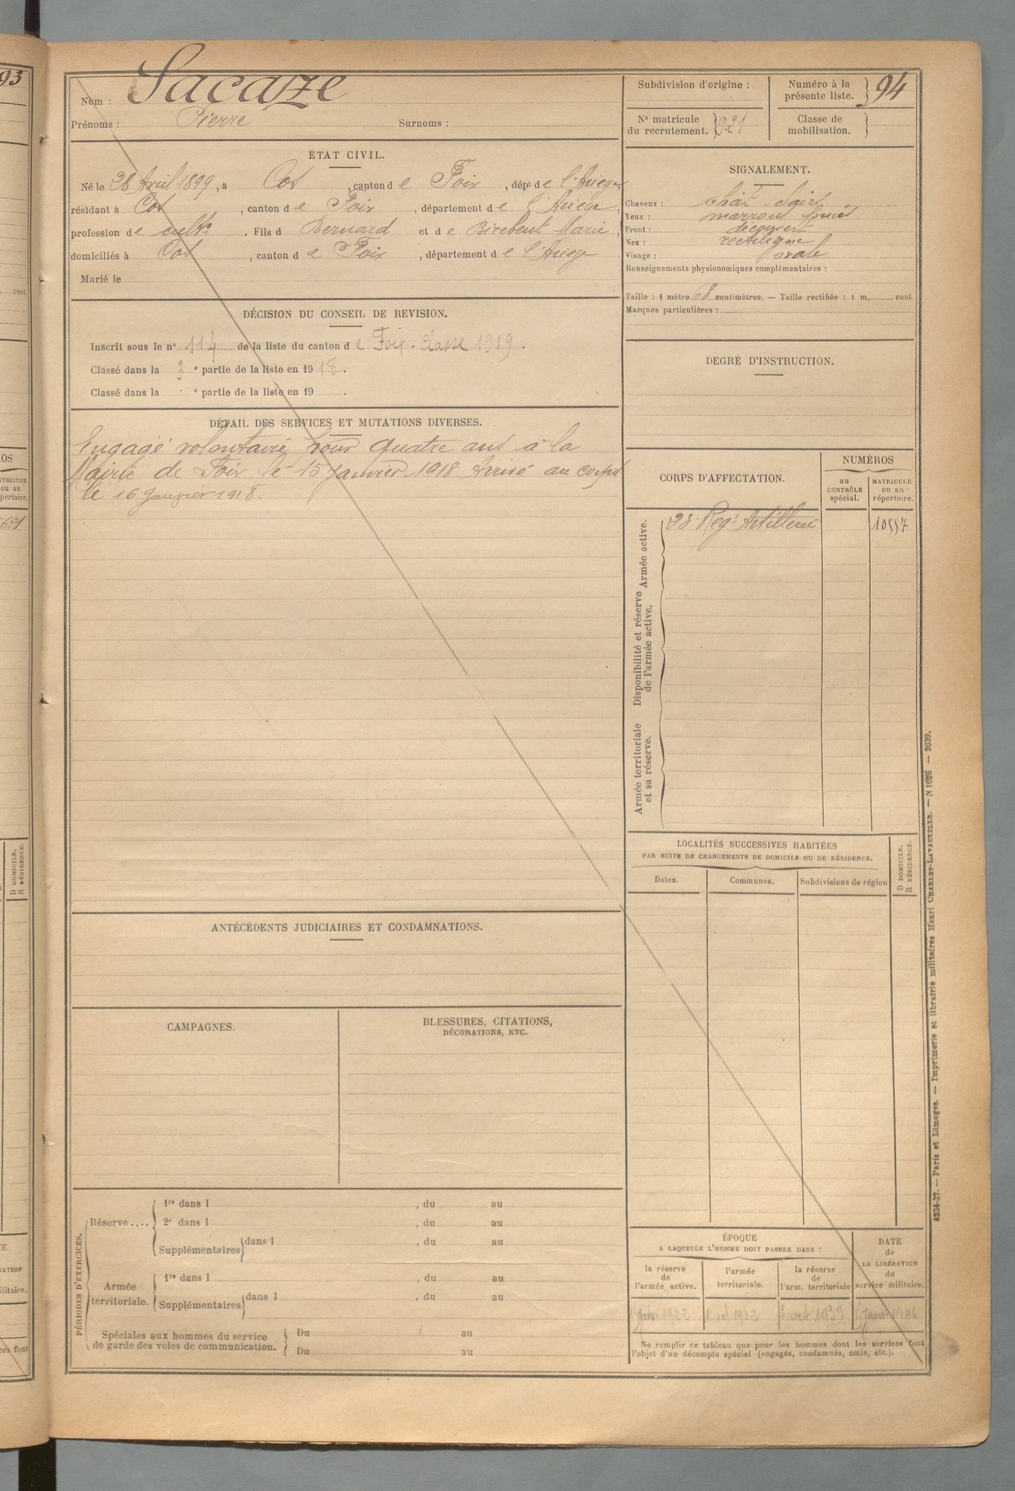 93
Nom : Sacaze
Prénoms : Pierre Surnoms :
Subdivision d'origine :
Numéro à la présente liste. 94
Nº matricule du recrutement. 921
Classe de mobilisation.
ÉTAT CIVIL.
Né le 28 Avril 1899, à Cos, canton de Foix, dépt de l'Ariège
résidant à Cos, canton de Foix, département de l'Ariège
profession de cultr. Fils d Bernard et de Birebent Marie
domiciliés à Cos, canton de Foix, département de l'Ariège
Marié le
SIGNALEMENT.
Cheveux : chât clairs
Yeux : marrons
Front :
Nez : rectiligne
Visage : ovale
Renseignements physionomiques complémentaires :
Taille : 1 mètre 68 centimètres. — Taille rectifiée : 1 m. cent
Marques particulières :
DÉCISION DU CONSEIL DE REVISION.
Inscrit sous le nº 114 de la liste du canton de Foix - Classe 1919.
Classé dans la e partie de la liste en 1918.
Classé dans la e partie de la liste en 19
DEGRÉ D'INSTRUCTION.
DÉTAIL DES SERVICES ET MUTATIONS DIVERSES.
Engagé volontaire pour quatre ans à la
Mairie de Foix le 15 Janvier 1918 Arrivé au corps
le 16 Janvier 1918.
CORPS D'AFFECTATION.
NUMÉROS
AU CONTRÔLE spécial.
MATRICULE ou au répertoire.
Armée active.
23e Regt Artillerie 10557
Disponibilité et réserve de l'armée active.
Armée territoriale et sa réserve.
LOCALITÉS SUCCESSIVES HABITÉES
PAR SUITE DE CHANGEMENTS DE DOMICILE OU DE RÉSIDENCE.
Dates. Communes. Subdivisions de région
D DOMICILE. R RÉSIDENCE.
ANTÉCÉDENTS JUDICIAIRES ET CONDAMNATIONS.
CAMPAGNES.
BLESSURES, CITATIONS,
DÉCORATIONS, ETC.
PÉRIODES D'EXERCICES.
Réserve....
1re dans l , du au
2e dans l , du au
Supplémentaires dans l , du au
Armée territoriale.
1re dans l , du au
Supplémentaires dans l , du au
Spéciales aux hommes du service
de garde des voies de communication.
Du au
Du au
ÉPOQUE
A LAQUELLE L'HOMME DOIT PASSER DANS :
la réserve de l'armée active.
l'armée territoriale.
la réserve de l'arm. territoriale
DATE de LA LIBÉRATION du service militaire.
Ne remplir ce tableau que pour les hommes dont les services font
l'objet d'un décompte spécial (engagés, condamnés, omis, etc.).
4234-37. — Paris et Limoges. — Imprimerie et librairie militaires Henri CHARLES-LAVAUZELLE. — N 1026 — 2639.